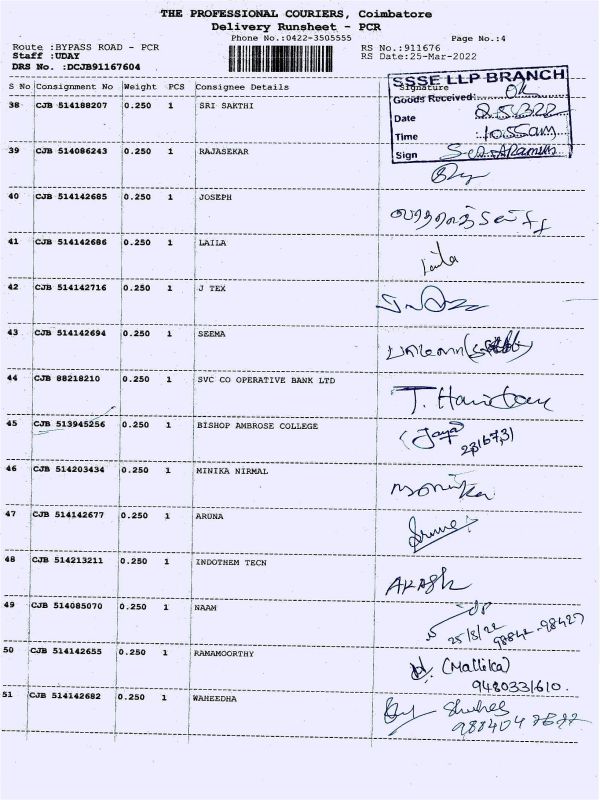 THE PROFESSIONAL COURIERS, Coimbatore
Delivery Runsheet - PCR
Phone No.:0422-3505555 Page No.:4
Route :BYPASS ROAD - PCR RS No.:911676
Staff :UDAY RS Date:25-Mar-2022
DRS No. :DCJB91167604
S No Consignment No Weight PCS Consignee Details Signature
SSSE LLP BRANCH
Goods Received: OK
Date
Time 10.55am
Sign
38 CJB 514188207 0.250 1 SRI SAKTHI
39 CJB 514086243 0.250 1 RAJASEKAR
40 CJB 514142685 0.250 1 JOSEPH
41 CJB 514142686 0.250 1 LAILA Laila
42 CJB 514142716 0.250 1 J TEX
43 CJB 514142694 0.250 1 SEEMA
44 CJB 88218210 0.250 1 SVC CO OPERATIVE BANK LTD
45 CJB 513945256 0.250 1 BISHOP AMBROSE COLLEGE Jaya
46 CJB 514203434 0.250 1 MINIKA NIRMAL
47 CJB 514142677 0.250 1 ARUNA
48 CJB 514213211 0.250 1 INDOTHEM TECN AKASH
49 CJB 514085070 0.250 1 NAAM
50 CJB 514142655 0.250 1 RAMAMOORTHY (Mallika)
9480331610.
51 CJB 514142682 0.250 1 WAHEEDHA